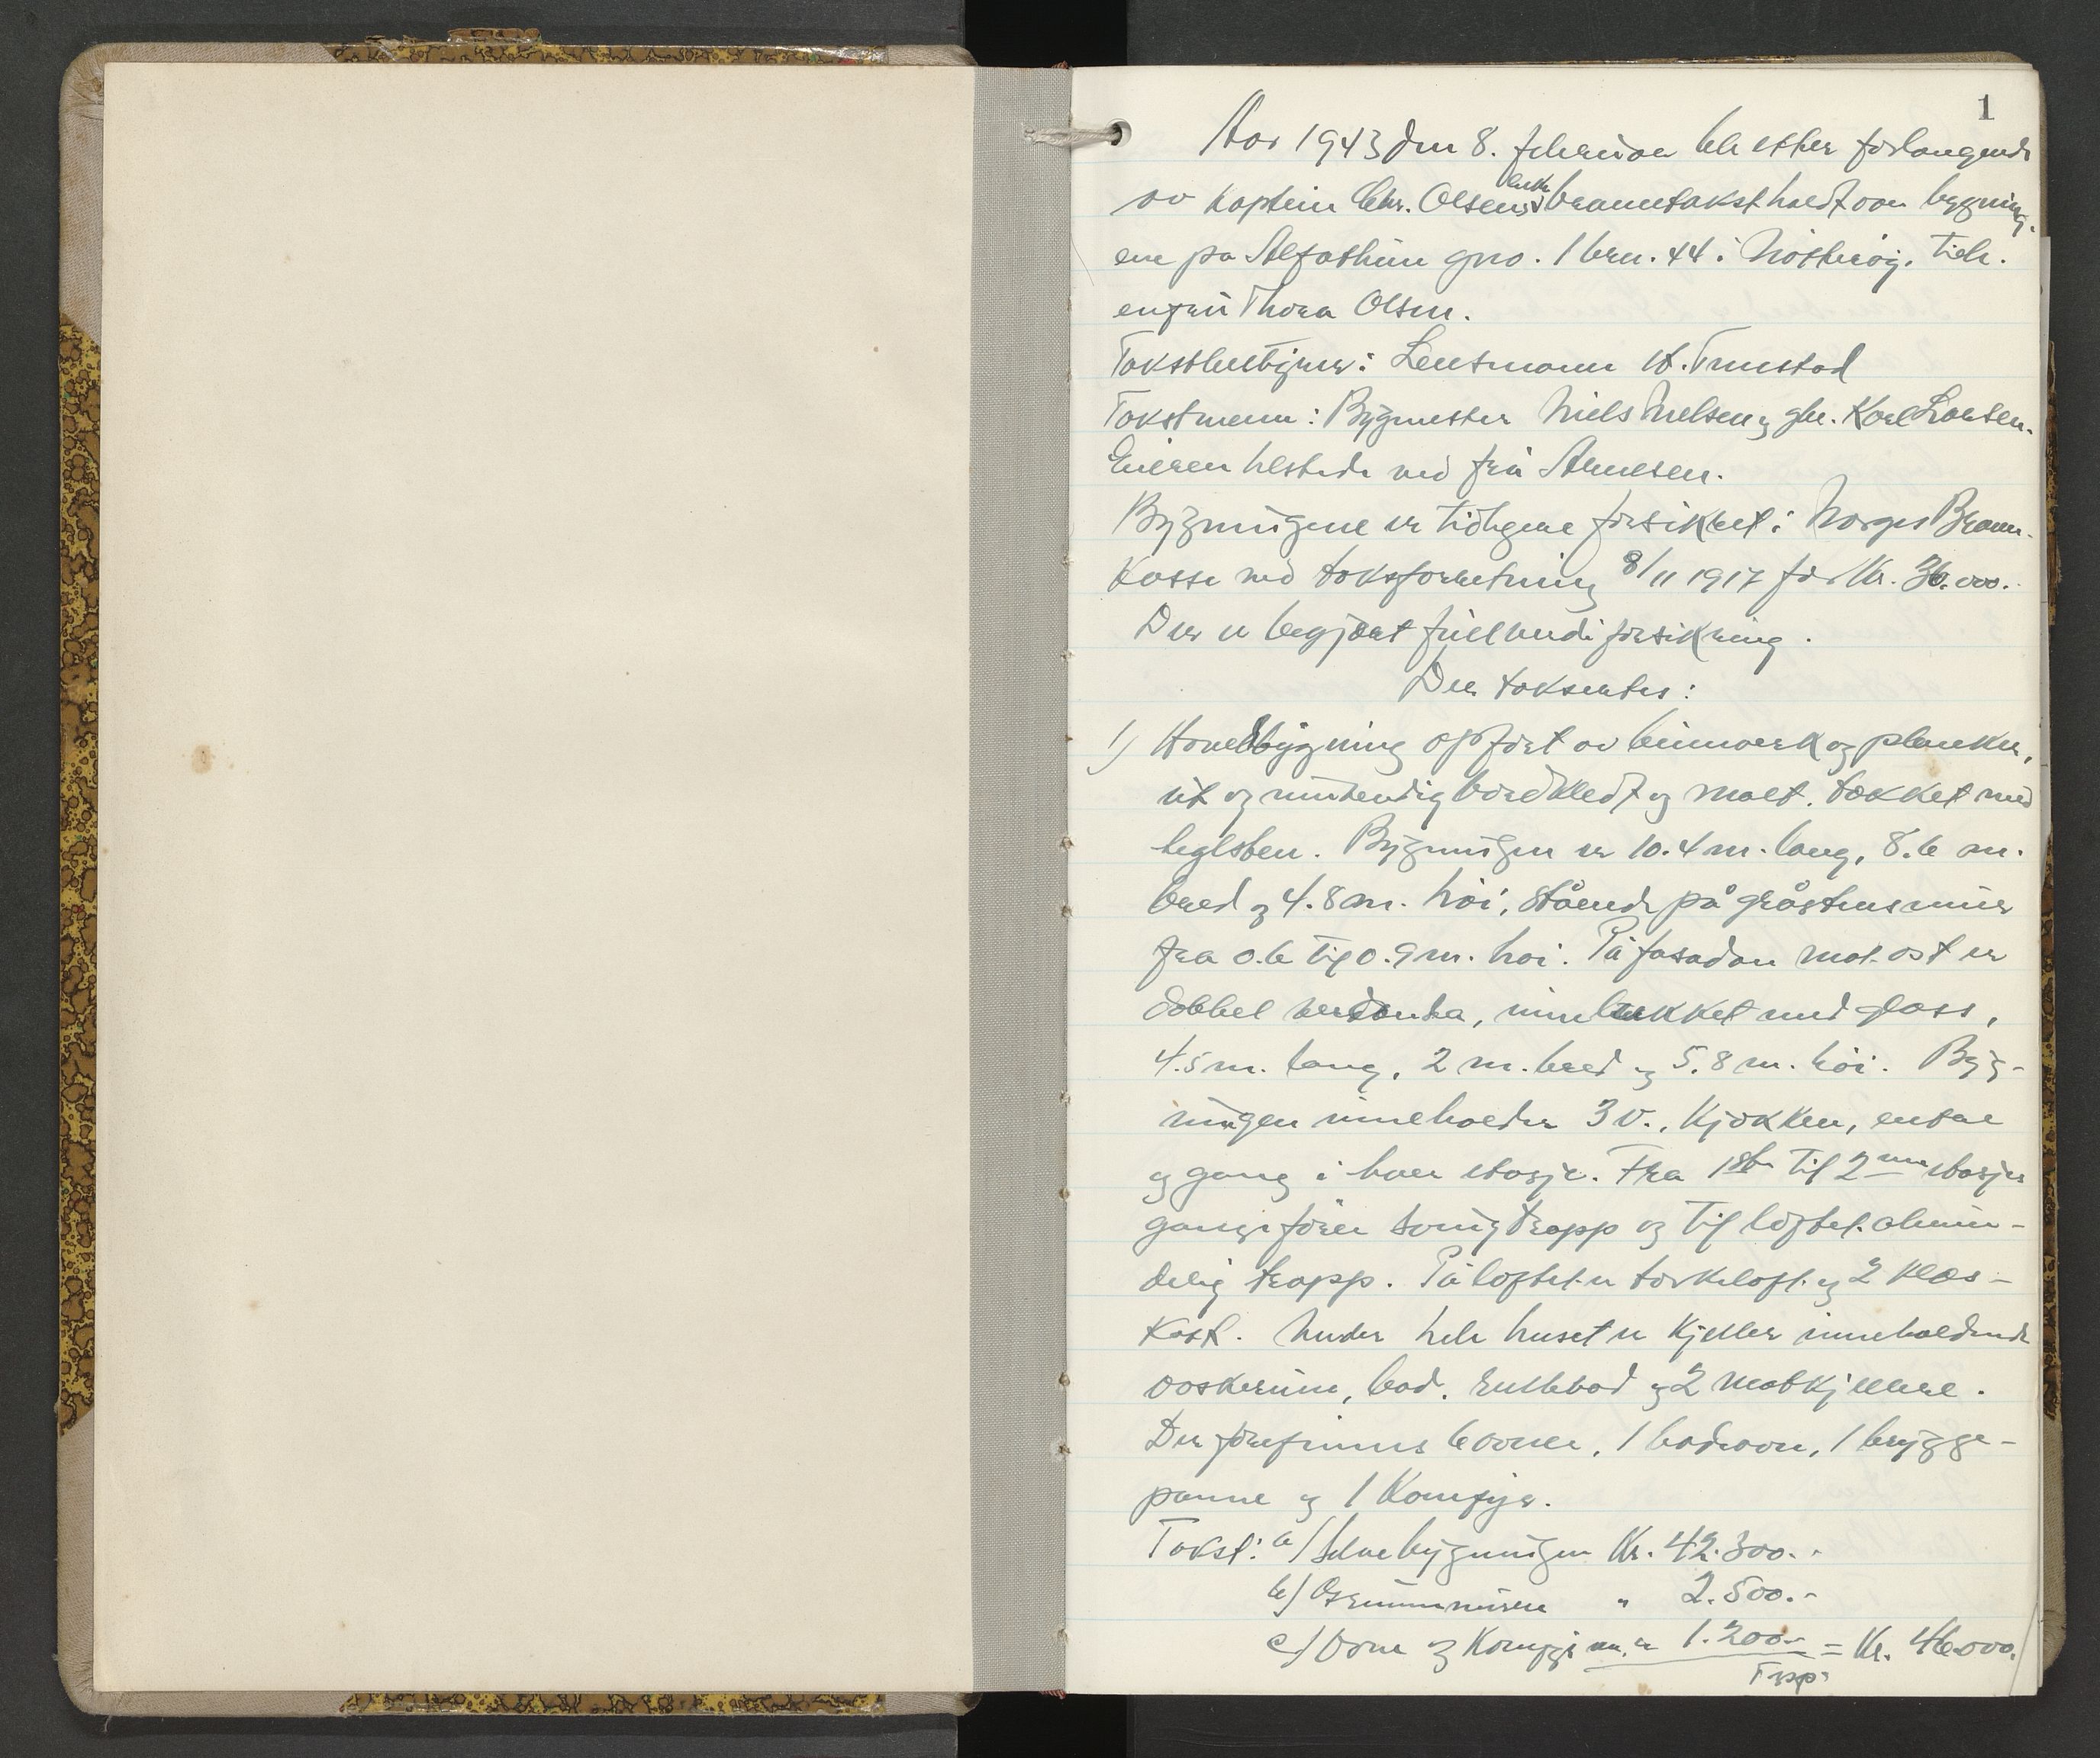 1
Aar 1943 den 8. februar ble etter forlangende
av Kaptein Chr. Olsens enke branntakst holdt over bygning-
ene på Alfashim gno. 1 brn. 44 i Nøtterøy. Tilh.
enkefru Thora Olsen.
Takstbestyrer: Lensmann A. Trustad
Takstmenn: Bygmester Niels Nielsen og gbr. Karl Larsen.
Eieren tilstede ved fru Arnesen.
Bygningene er tidligere forsikret i Norges Brann-
Kasse ved takstforretning 8/11 1917 for Kr. 36.000.
Der er begjært fullverdiforsikring.
Der takseertes:
1) Hovedbygning opført av binnverk og planker,
ut og innvendig bordkledt og malt. tækket med
teglsten. Bygningen er 10.4 m. lang, 8.6 m.
bred og 4.8 m. høi, stående på gråstensmur
fra 0.6 til 0.9 m. høi. På fasaden mot øst er
dobbel veranda, innelukket med glass,
4.5 m. lang, 2 m. bred og 5.8 m. høi. Byg-
ningen inneholder 3 v., Kjøkken, entre
og gang i hver etasje. Fra 1ste til 2nen etasjes
gang fører svingtrapp og til loftet almin-
delig trapp. På loftet er tørkeloft og 2 klæs-
Kott. Under hele huset er Kjeller inneholdende
vaskerum, bad, rullebod og 2 matkjellere.
Der forefinnes 6 ovner, 1 badeovn, 1 brygge-
panne og 1 Komfyr.
Takst: a/ Selve bygningen Kr. 42.300.-
b/ Grunnmuren " 2.500.-
c/ Ovne og Komfyr m.v. 1.200.- = Kr. 46.000.
Trsp.